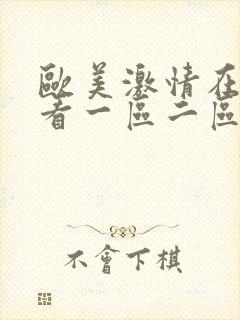 歐美激情在
看一區二區
不會下棋